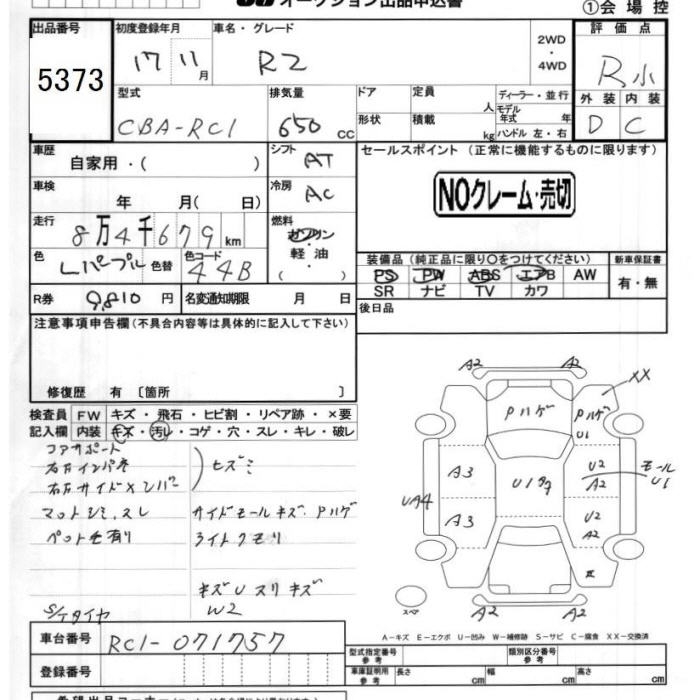 オークション出品申込書 ①会場控
出品番号 初度登録年月 車名・グレード 評価点
5373 17 11月 R2 2WD・4WD R小
型式 排気量 ドア 定員 人 ディーラー・並行 外装 内装
CBA-RC1 650cc 形状 積載 kg モデル年式 年 ハンドル 左・右 D C
車歴 自家用・( ) シフト AT セールスポイント (正常に機能するものに限ります)
車検 年 月( 日) 冷房 AC NOクレーム・売切
走行 8万4千679km 燃料 ガソリン・軽油・( )
色 Lパープル 色替 色コード 44B 装備品 (純正品に限り○をつけてください) 新車保証書
PS PW ABS エアB AW 有・無
SR ナビ TV カワ
R券 9,810円 名変通知期限 月 日 後日品
注意事項申告欄 (不具合内容等は具体的に記入して下さい)
修復歴 有 〔箇所 〕
検査員 FW キズ・飛石・ヒビ割・リペア跡・×要
記入欄 内装 キズ・汚レ・コゲ・穴・スレ・キレ・破レ
コアサポート
右Fインパネ )ヒズミ
右Fサイドメンバー
マットシミ,スレ サイドモールキズ・Pハゲ
ペット毛有り ライトクモリ
キズUスリキズ
S/Tタイヤ W2
A2 A2 XX
Pハゲ Pハゲ
U1
A3 U2 モール
U1多 A2 U1
UA4
A3 U2
A2
スペア A2 A2
A-キズ E-エクボ U-凹み W-補修跡 S-サビ C-腐食 XX-交換済
車台番号 RC1-071757 型式指定番号 参考 類別区分番号 参考
登録番号 車庫証明用 参考 長さ cm 幅 cm 高さ cm